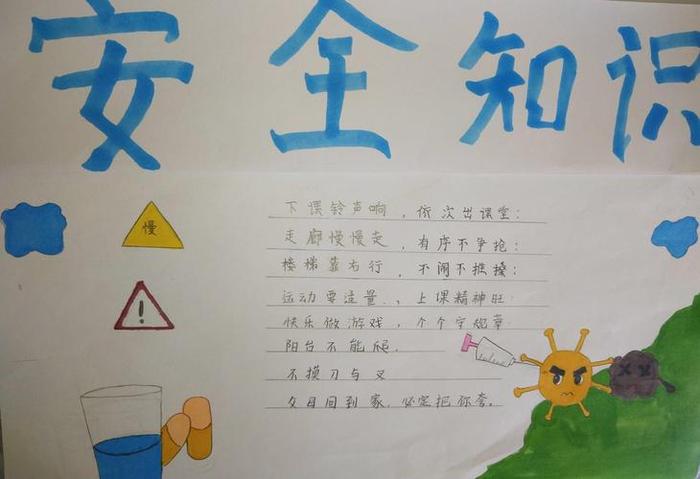 安全知识
慢
下课铃声响，依次出课堂：
走廊慢慢走，有序不争抢：
楼梯靠右行，不闹不推搡；
运动要适量，上课精神旺
快乐做游戏，个个守规章
阳台不能爬．
不摸刀与叉
父母回到家．必定把你夸。